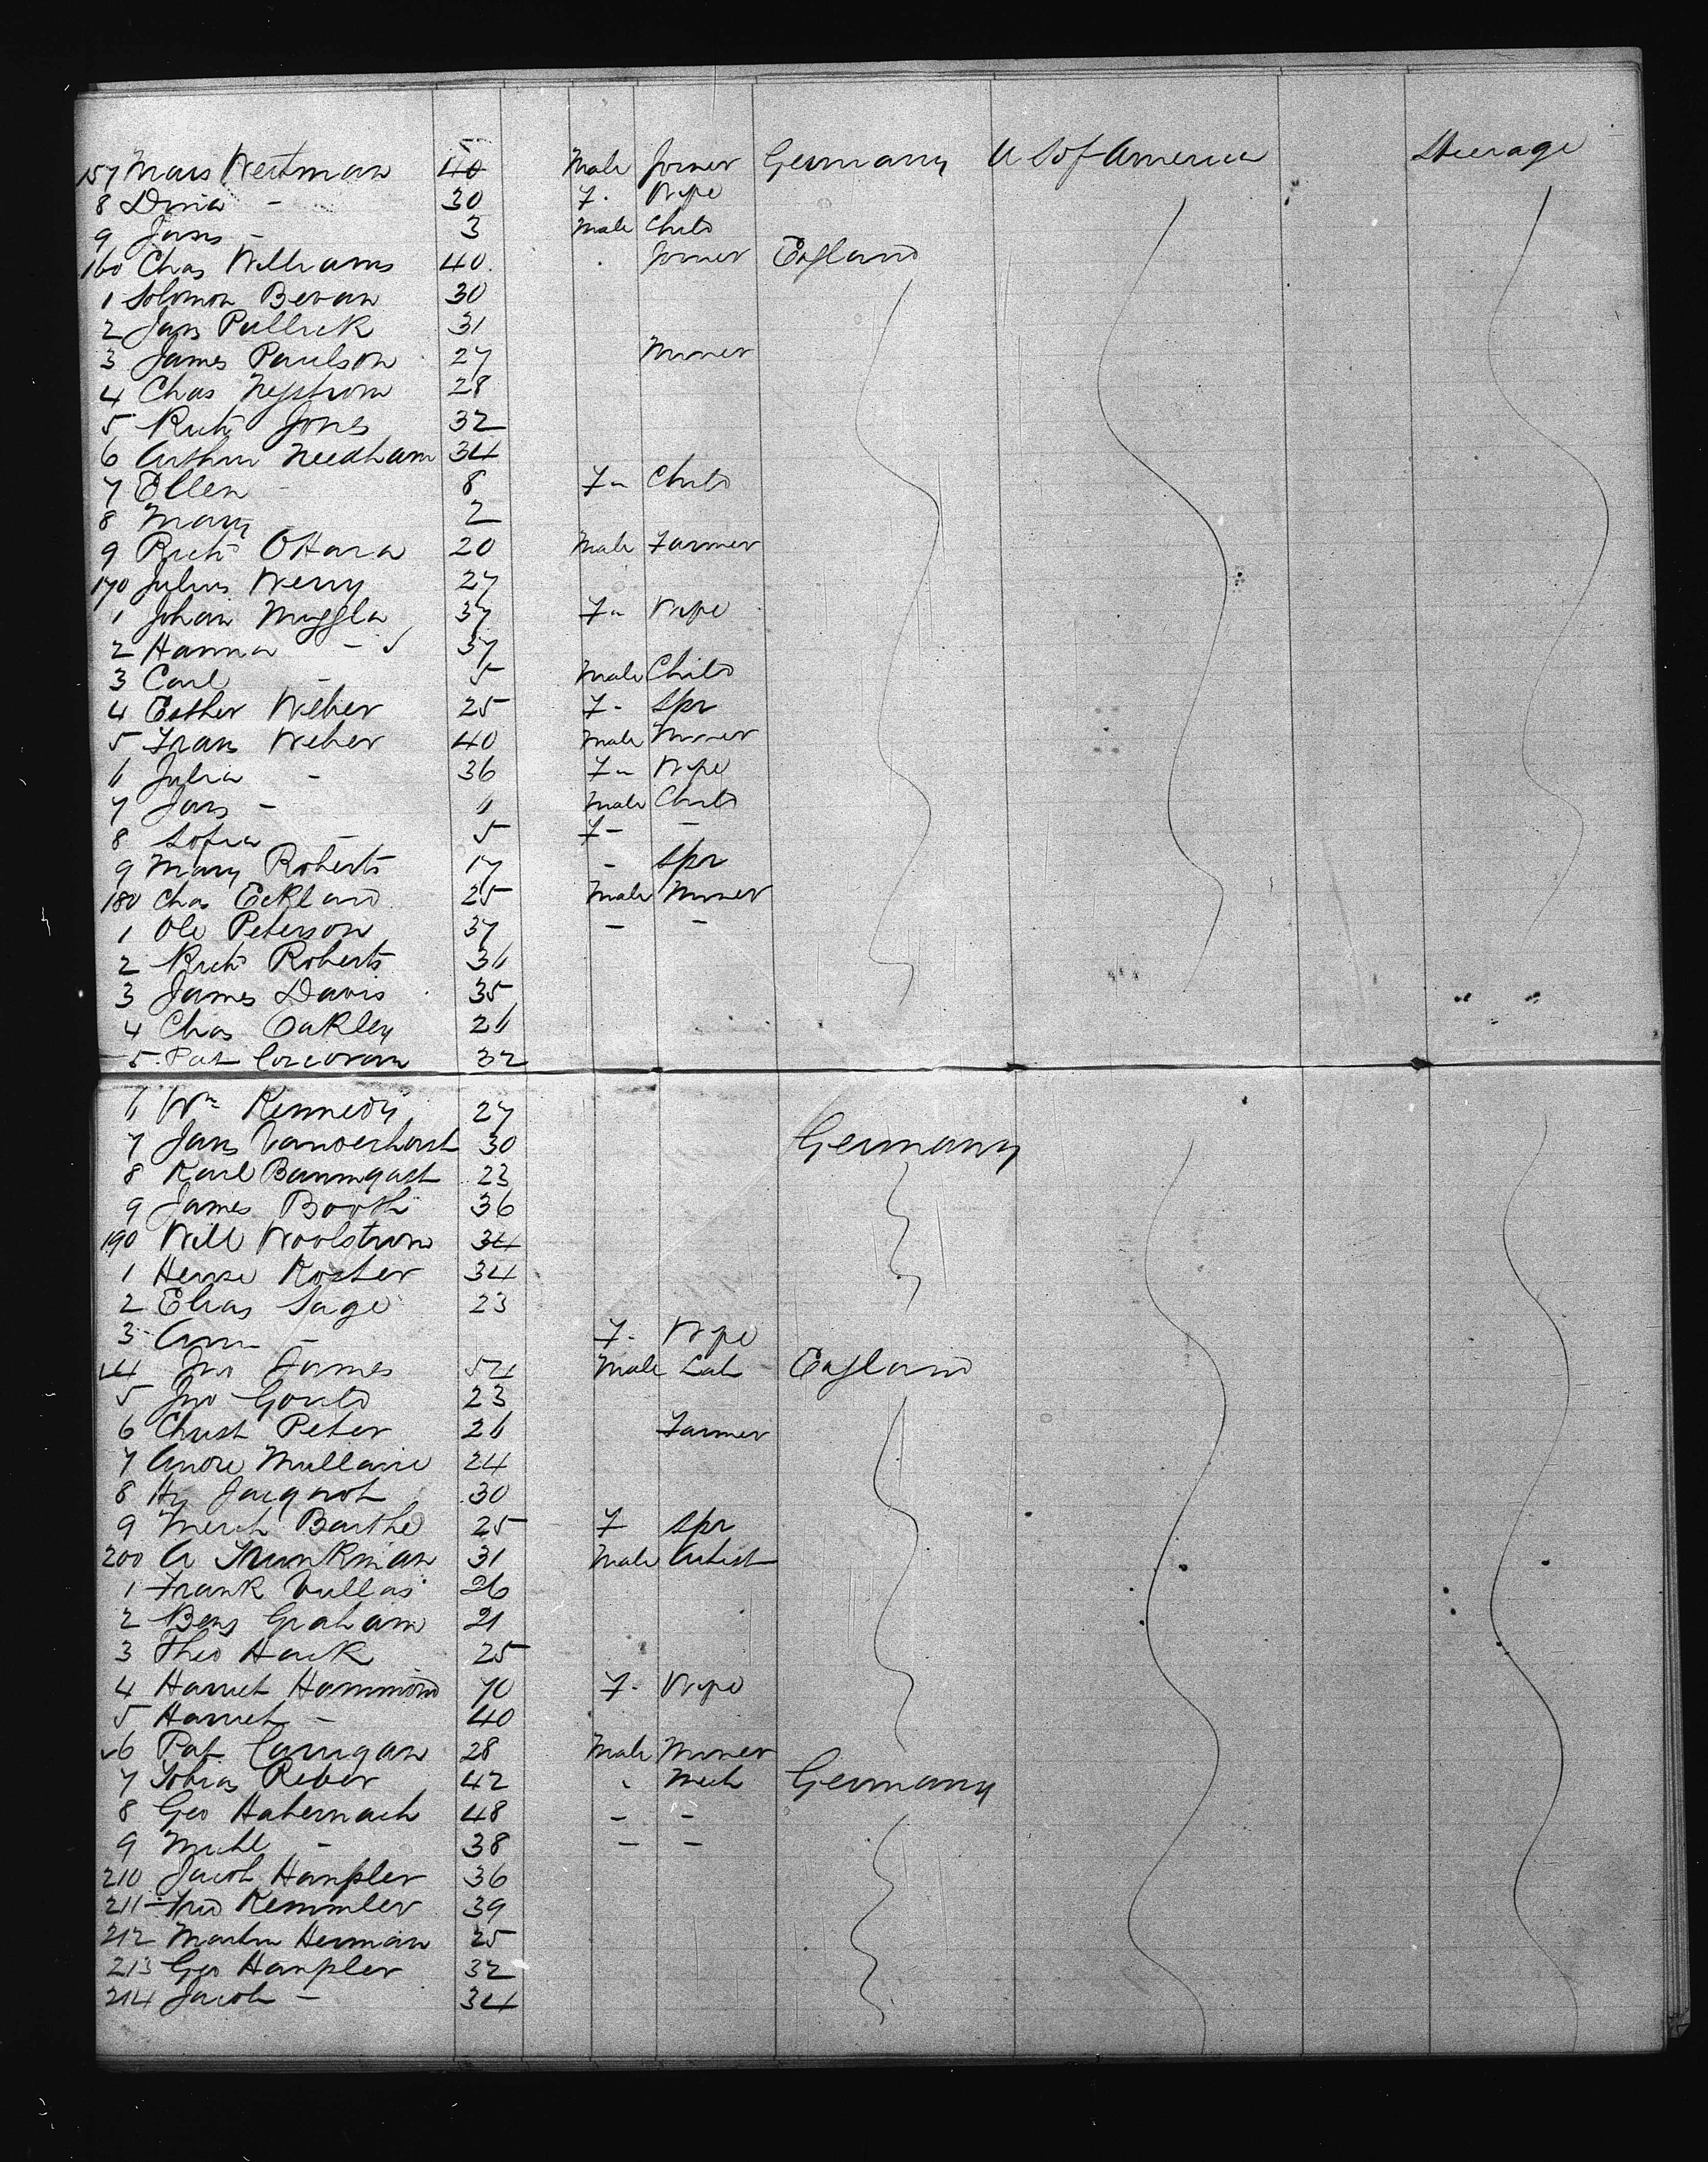 157 Mars Weitman 40 Male Joiner Germany U S of America Steerage
8 Dina - 30 F. Wife
9 Jans - 3 Male Child
160 Chas Williams 40 Joiner England
1 Solomon Bevan 30
2 Jans Pullick 31
3 James Paulson 27 Miner
4 Chas Nystrom 28
5 Richd Jones 32
6 Arthur Needham 34
7 Ellen - 8 F- Child
8 Mary - 2
9 Richd OHara 20 Male Farmer
170 Julius Werry 27
1 Johan Muggla 37 F- Wife
2 Hanna - 37
3 Carl - 5 Male Child
4 Esther Weber 25 F- Spr
5 Frans Weber 40 Male Miner
6 Julia - 36 F- Wife
7 Jans - 11 Male Child
8 Sofia - 5 F- -
9 Mary Roberts 17 - Spr
180 Chas Eckland 25 Male Miner
1 Ole Peterson 37 - -
2 Richd Roberts 36
3 James Davis 35
4 Chas Oakley 26
5 Pat Corcoran 32
6 Wm Kennedy 27
7 Jans Vanderhorst 30 Germany
8 Karl Baumgast 23
9 James Booth 36
190 Will Woolstrom 34
1 Hense Koster 34
2 Elias Sage 23
3 Ann - F- Wife
4 Jno James 54 Male Lab England
5 Jno Gould 23
6 Christ Peter 26 Farmer
7 Andre Mullaire 24
8 Hy Jacquot 30
9 Barthe 25 F Spr
200 A Trunkman 31 Male Artist
1 Frank Vullas 26
2 Benj Graham 21
3 Theo Hack 25
4 Harriet Hammond 70 F- Wife
5 Harriet - 40
6 Pat Carrigan 28 Male Miner
7 Tobias Reber 42 Mech Germany
8 Geo Habernach 48 - -
9 Michl - 38 - -
210 Jacob Hampler 36
211 Fred Kemmler 39
212 Martin Herman 25
213 Geo Hampler 32
214 Jacob - 34